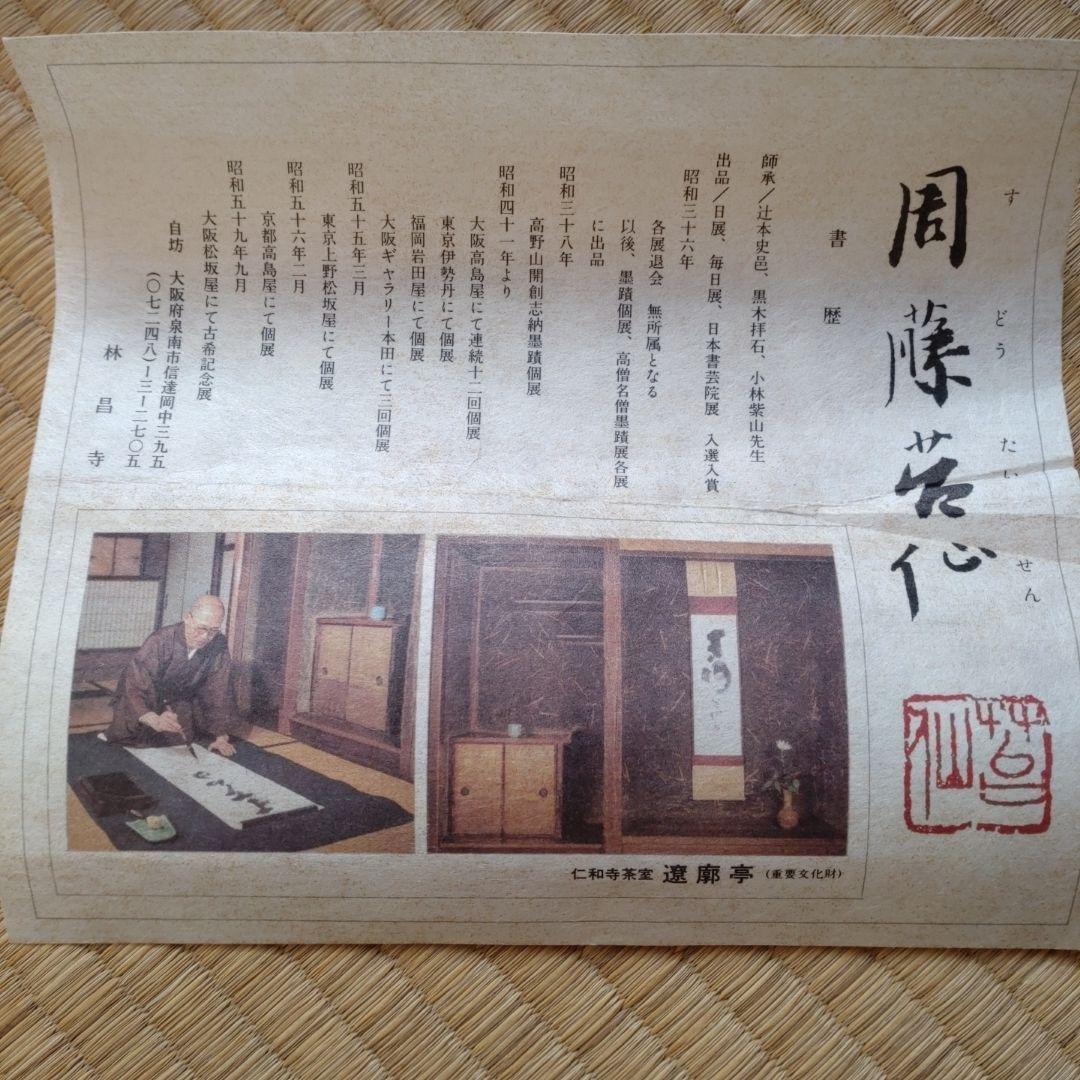 周藤苔仙
すどうたいせん
書歴
師承／辻本史邑、黒木拝石、小林紫山先生
出品／日展、毎日展、日本書芸院展 入選入賞
昭和三十六年
各展退会 無所属となる
以後、墨蹟個展、高僧名僧墨蹟展各展
に出品
昭和三十八年
高野山開創志納墨蹟個展
昭和四十一年より
大阪高島屋にて連続十二回個展
東京伊勢丹にて個展
福岡岩田屋にて個展
大阪ギャラリー本田にて三回個展
昭和五十五年三月
東京上野松坂屋にて個展
昭和五十六年二月
京都高島屋にて個展
昭和五十九年九月
大阪松坂屋にて古希記念展
自坊 大阪府泉南市信達岡中三九五
(〇七二四八)ー三ー二七〇五
林昌寺
苔仙
仁和寺茶室 遼廓亭 (重要文化財)